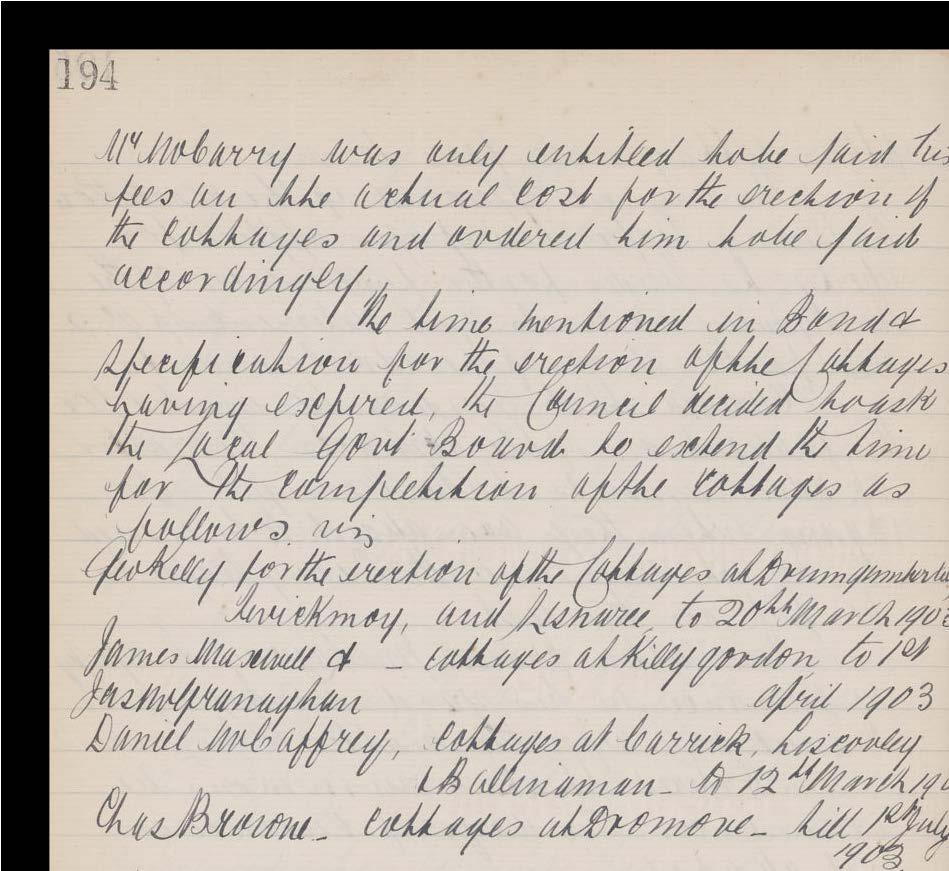 194
Mr McCarry was only entitled to be paid his
fees on the actual cost for the erection of
the cottages and ordered him to be paid
accordingly
The time mentioned in Bond &
specification for the erection of the Cottages
having expired, the Council decided to ask
the Local Govt Board to extend the time
for the completition of the cottages as
follows viz
Geo Kelly for the erection of the Cottages at
and Lisnaree to 20th March 1903
James Maxwell & - cottages at Killygordon to 1st
Jas McGranaghan April 1903
Daniel McCaffrey, cottages at Carrick, Liscooley
& Ballinaman - to 12th March 190
Chas Browne - cottages at Dromore - till 1st July
1903